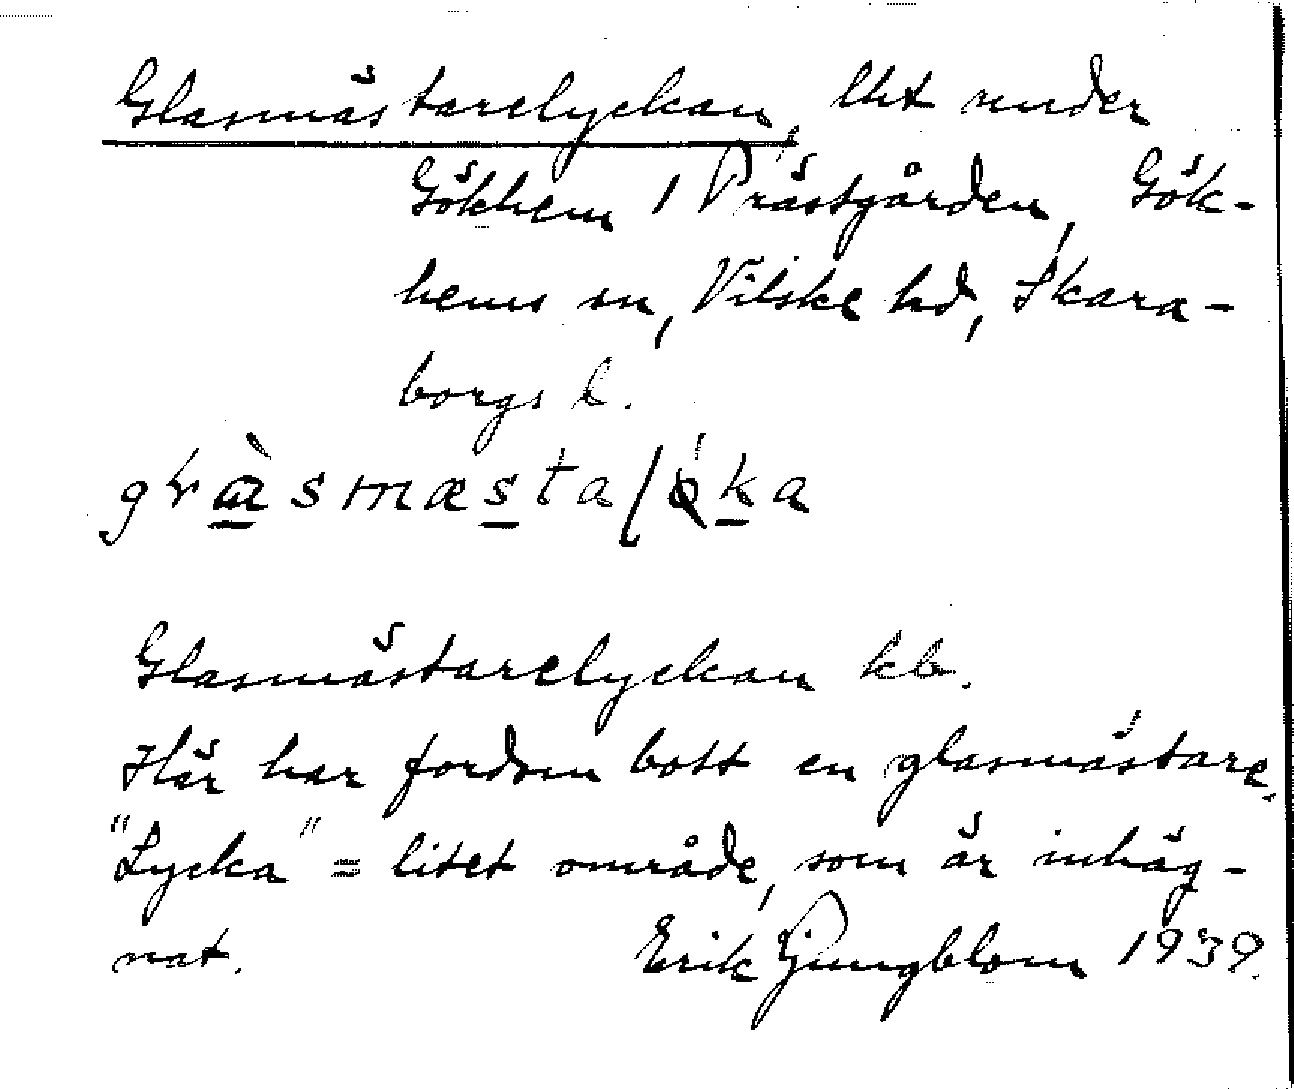 Glasmästarelyckan, lht under
Gökhem 1 Prästgården, Gök-
hems sn, Vilske hd, Skara-
borgs l.
Glasmästarelyckan kb.
Här har fordom bott en glasmästare.
"Lycka" = litet område, som är inhäg-
nat. Erik Ljungblom 1939.